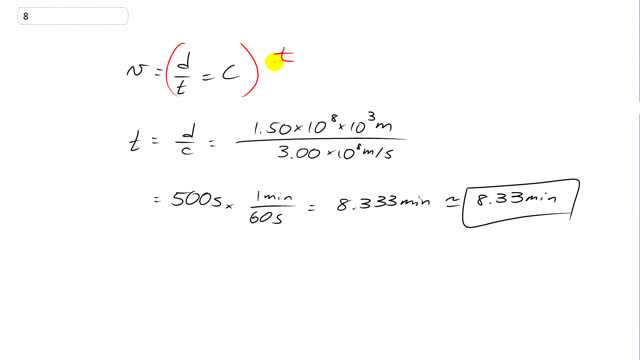 8
v = (d/t = c) t
t = d/c = 1.50×10⁸×10³m / 3.00×10⁸m/s
= 500s × 1min/60s = 8.333min ≃ 8.33min